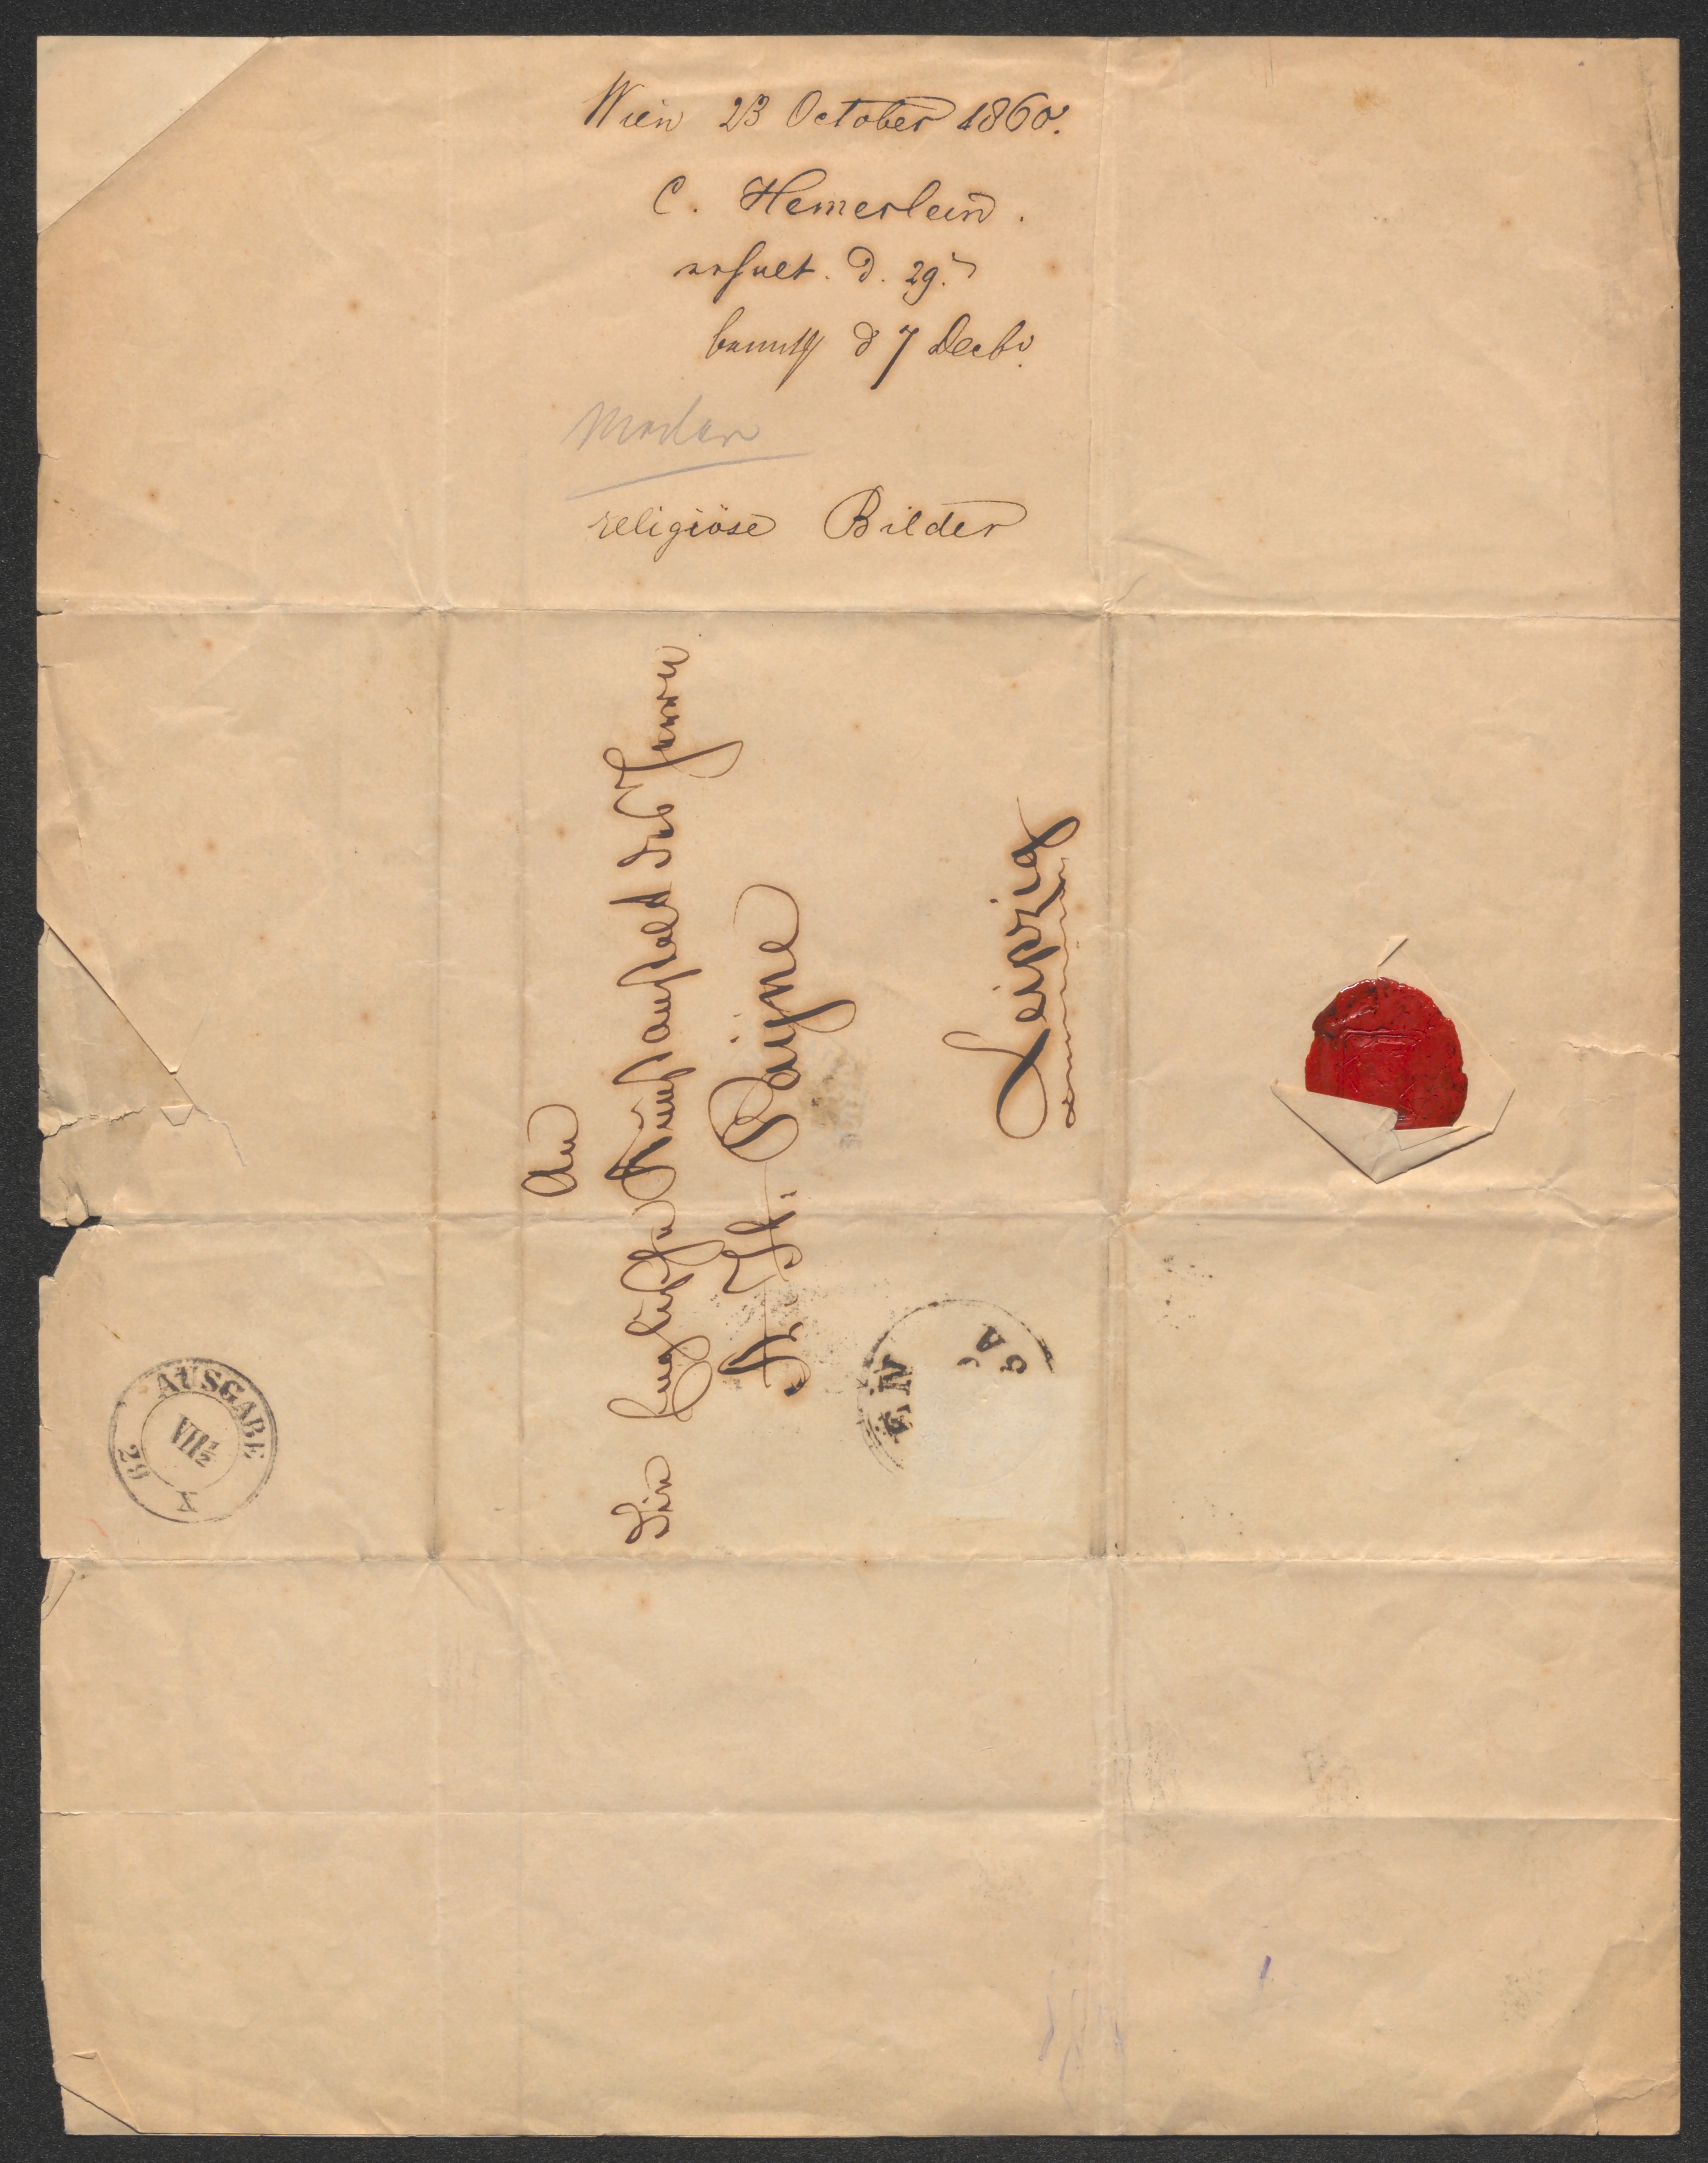 Wien 23 October 1860.
C. Hemerlein.
erhalt. d. 29.
beantw d 7 Decbr.
Maler
religiöse Bilder
An
Die Englische Kunstanstalt des Herrn
A. H. Payne
Leipzig
AUSGABE
VII½
29
X